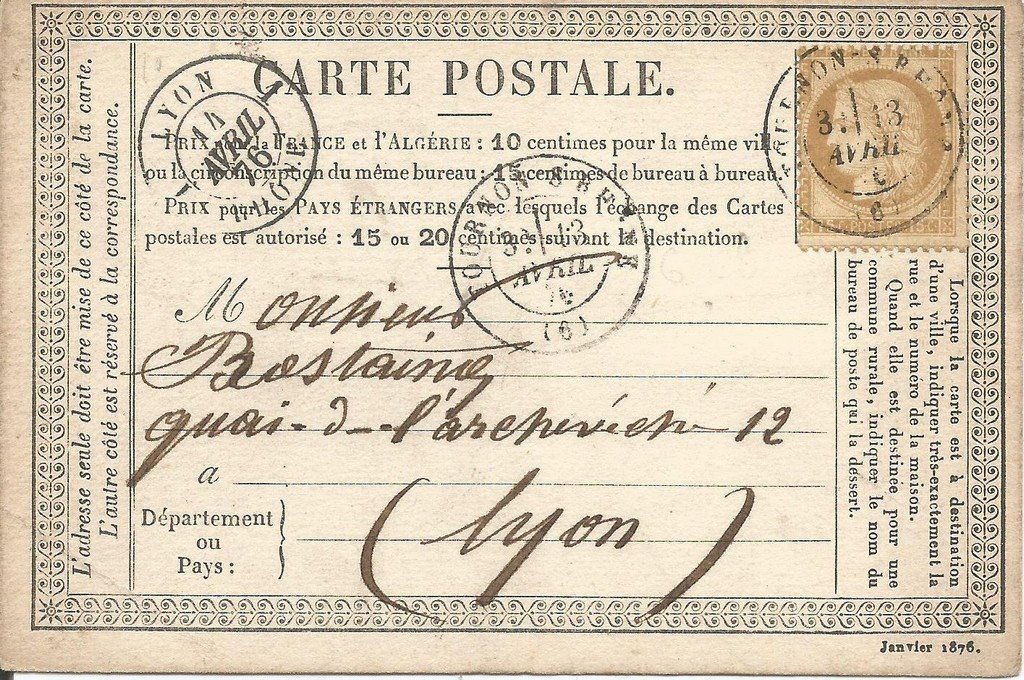 CARTE POSTALE.
PRIX pour la FRANCE et l'ALGÉRIE : 10 centimes pour la même ville
ou la circonscription du même bureau : 15 centimes de bureau à bureau.
PRIX pour les PAYS ÉTRANGERS avec lesquels l'échange des Cartes
postales est autorisé : 15 ou 20 centimes suivant la destination.
LYON
1
14
AVRIL
76
TOURNON S RHONE
3E 13
AVRIL
76
(6)
3E 13
AVRIL
(6)
Monsieur
Rostaing
quai de l'archevêché 12
à
(Lyon)
Département
ou
Pays :
L'adresse seule doit être mise de ce côté de la carte.
L'autre côté est réservé à la correspondance.
Lorsque la carte est à destination
d'une ville, indiquer très-exactement la
rue et le numéro de la maison.
Quand elle est destinée pour une
commune rurale, indiquer le nom du
bureau de poste qui la dessert.
Janvier 1876.